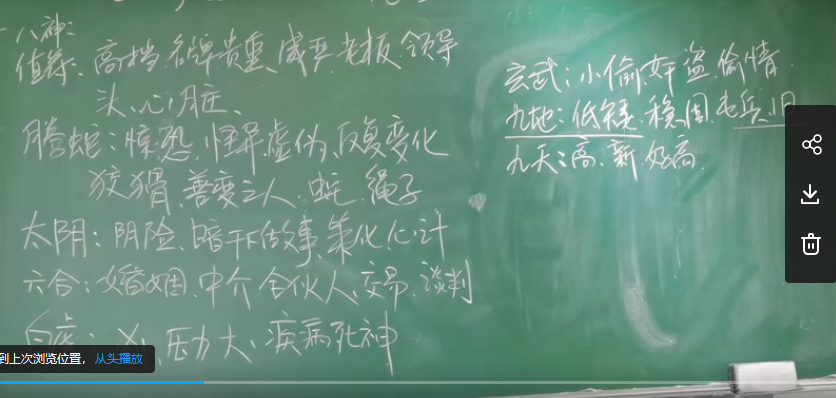 八神:
值符: 高档.名牌.贵重、威严.老板.领导
头、心脏、
腾蛇: 惊恐.怪异.虚伪.反复变化
狡猾、善变之人、蛇、绳子
太阴: 阴险.暗下做事.策化
六合: 婚姻.中介合伙人.交易.谈判
白虎: 压力大、疾病死神
玄武: 小偷.奸盗.偷情.
九地: 低矮.稳固.屯兵.旧
九天: 高.新.好高.
到上次浏览位置，从头播放